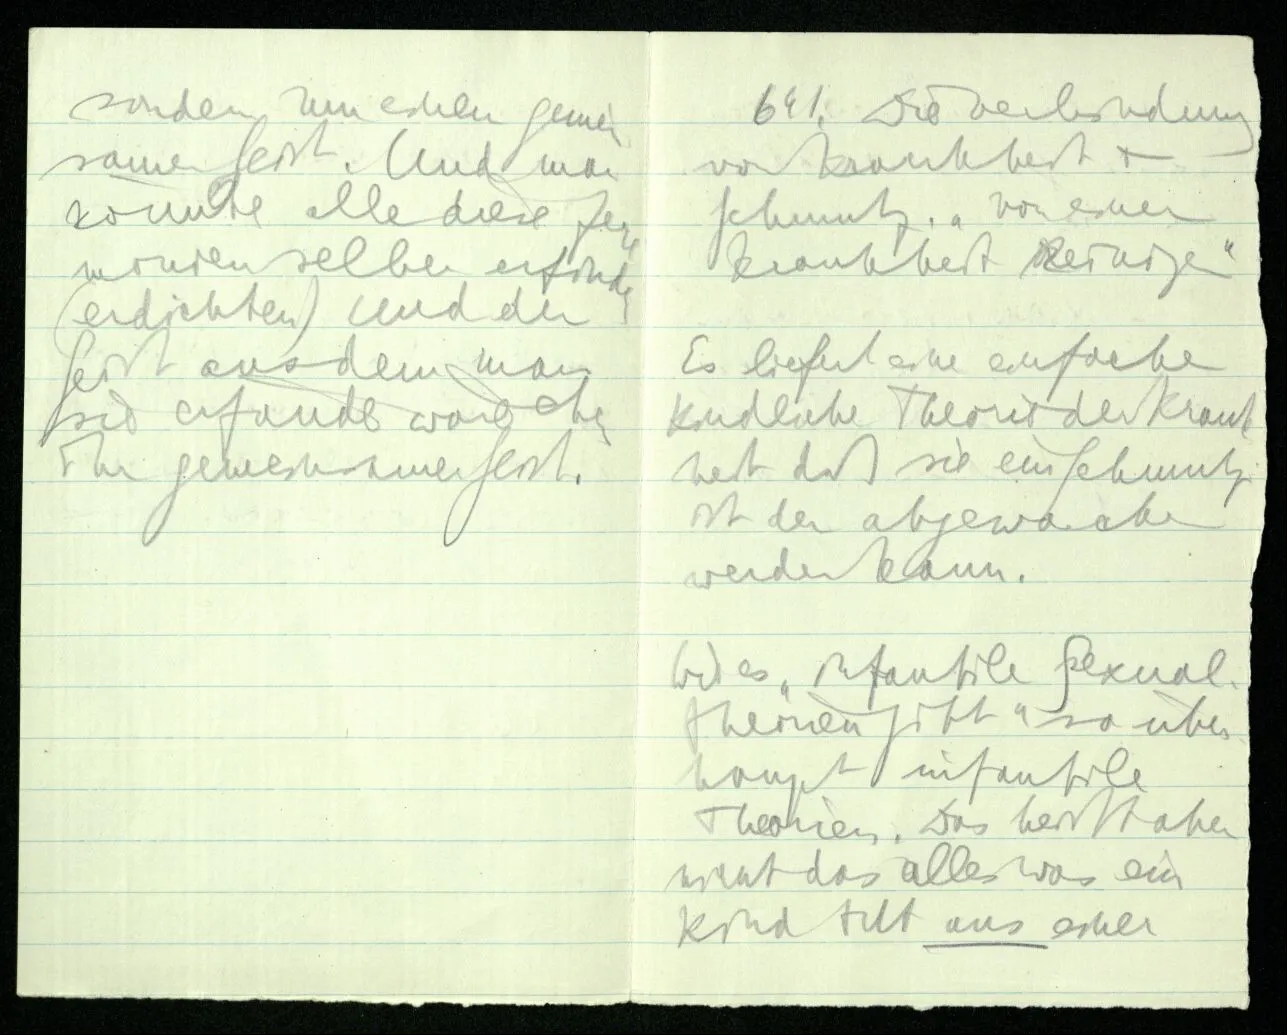 sondern um einen gemein
samen Geist. Und man
könnte alle diese Zere
monien selber erfinden
(erdichten) Und der
Geist aus dem man
sie erfände wäre eben
ihr gemeinsamer Geist.
641. Die Verbindung
von Krankheit +
Schmutz. „von einer
Krankheit Reinigen“
Es liefert eine einfache
kindliche Theorie der Krank
heit daß sie ein Schmutz
ist der abgewaschen
werden kann.
Wie es „infantile Sexual-
theorien gibt“ so über
haupt infantile
Theorien. Das heißt aber
nicht das alles was ein
Kind tut aus einer